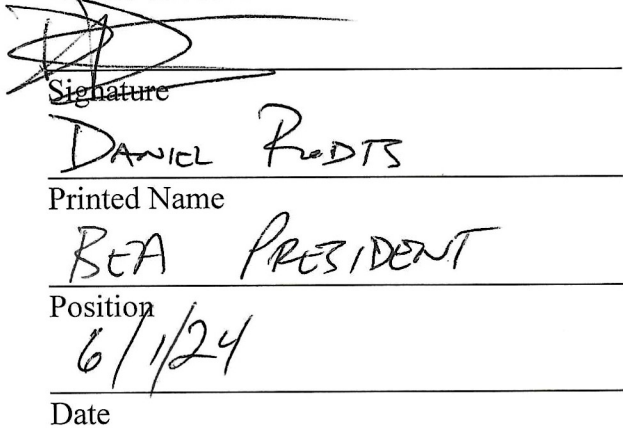 Signature
DANIEL RODTS
Printed Name
BEA PRESIDENT
Position
6/1/24
Date